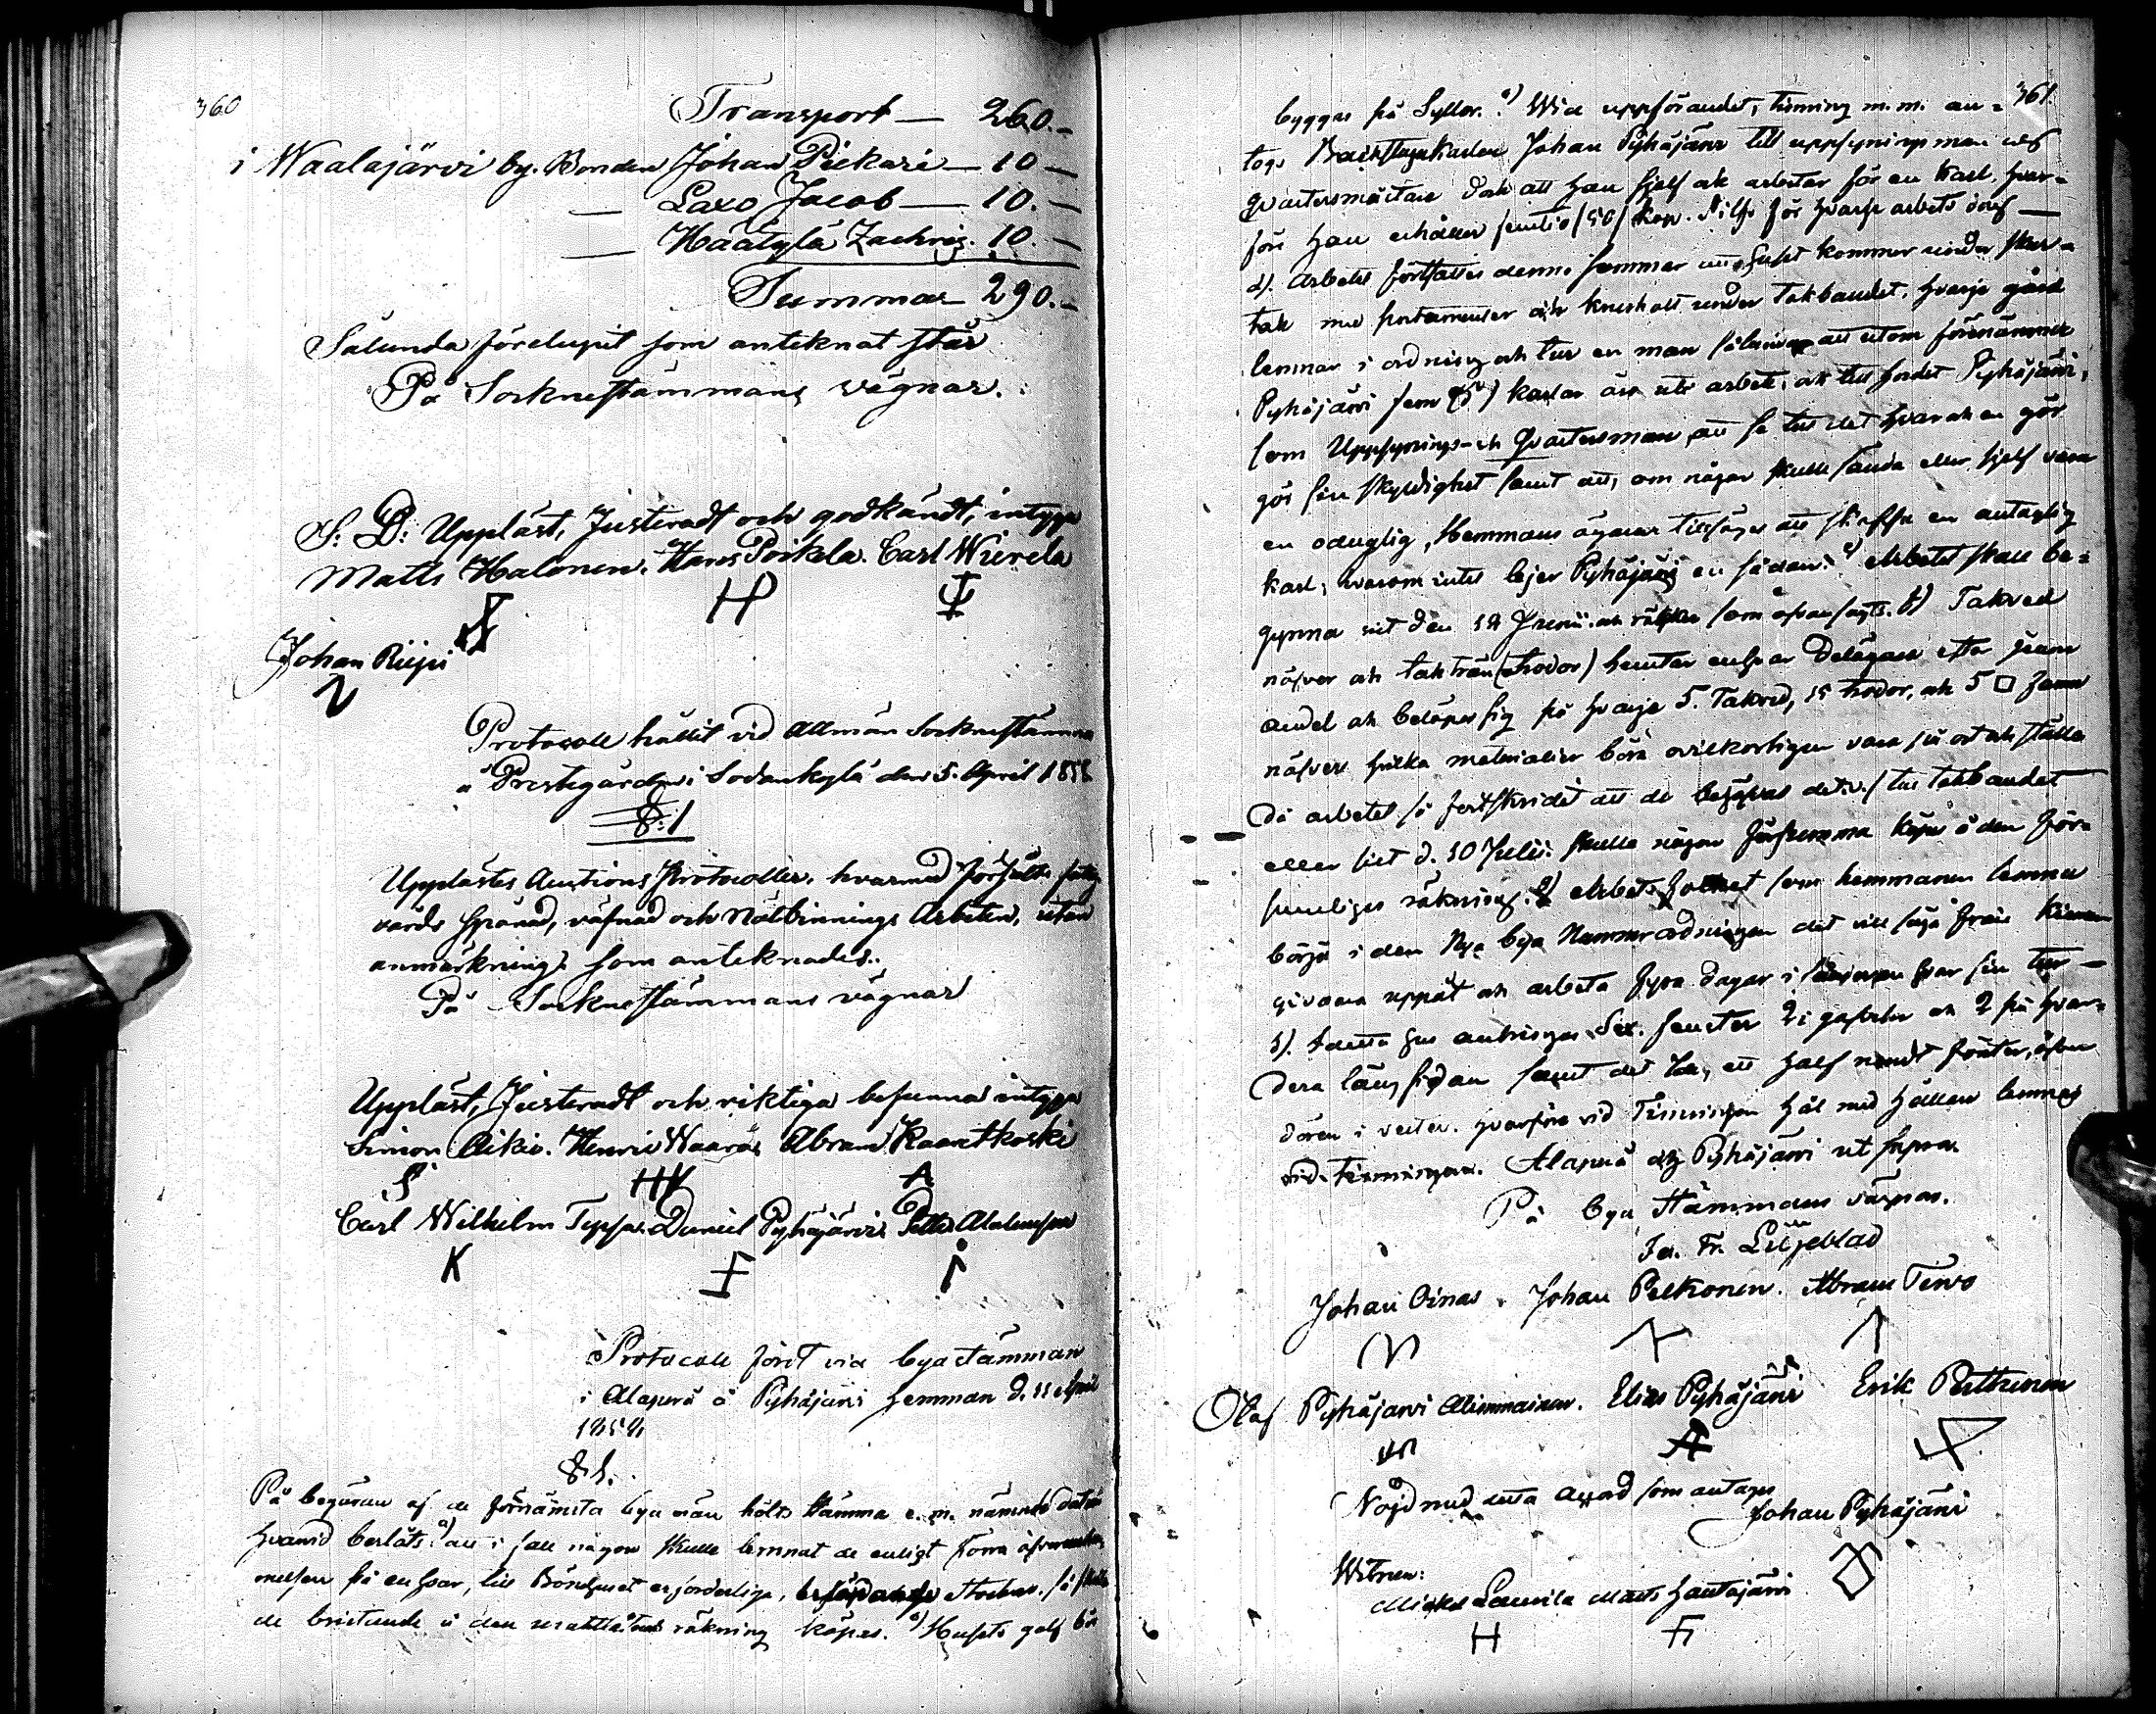 360
Transport — 260.-
i Waalajärvi by. Bonden Johan Piekari — 10 —
— Laxo Jacob — 10. —
— Häätylä Zachris. 10. —
Summa 290.-
Sålunda förelupit som anteknat står
På Sockneståmmans vägnar.
S: D: Uppläst, Justeradt och godkändt, intyga
Matts Halonen. Hans Poikela. Carl Wierela
Johan Riipi
Protocoll hållit vid Allmän Socknestämma
å Prestegården i Sodankylä den 5. April 1858
§: 1
Upplästes Auctions Protocoller, hvarmed försålts fattig
vårds Spånad, väfnad och Nötbinnings Arbeten, utan
anmärkning, som anteknades.
På Socknestämmans vägnar
Uppläst, Justeradt och riktiga befunna intyga
Simon Aikio. Henric Waara, Abram Kaarètkoski
Carl Wilhelm Teppo. Daniel Pyhäjärvi Petter
Protocoll fördt vid byastämman
i Alaperä å Pyhäjärvi hemman d. 11 April
1858
§ 1.
På begäran af de förnämsta bya män hölts stämma e. m. nämnde datum
hvarvid beslöts a) att i fall någon skulle lemnat de enligt förra
på en hvar, till Bönehuset erforderliga, stockar, så skulle
de bristande å den räkning köpas. b) Husets golf bör
361.
bygges på Syllor. c) Wid uppförandet, timring m. m. an-
togs Johan Pyhäjärvi till uppsyningsman och
qvartersmästare så att han sjelf ock arbetar för en karl, hvar-
före han erhåller femtio (50) kop. Silfr för hvarje arbets dag —
d). Arbetet fortsättes denna sommar att huset kommer under
tak med portamenter och under Takbandet, hvarje gård
lemnar i ordning och tur en man sålunda att utom förenämnde
Pyhäjärvi fem (5) karlar äro uti arbete, och till hördet Pyhäjärvi,
som Uppsynings- och Qvartersman att se till det hvar och en gör
gör sin skyldighet samt att, om någon skulle sända eller sjelf vara
en oduglig, Hemmans ägaren tillsäges att skaffa en antaglig
karl, hvarom intet lejer Pyhäjärvi en sådan. e) Arbetet skall be-
gynna sist den 14 Junii och som ofvan sagts. f) Takved
näfver och takträn (trodor) hemtar enhvar Delägare efter sin
andel och belöper sig på hvarje 5. Takved, 15 trodor, och 5 □ famn
näfver hvilka materialier böra ovilkorligen vara på ort och ställe
Då arbetet så fortskridit att de behöfves det v. s. till takbandet
eller sist d. 10 Julii. skulle någon försumma köpes å den för-
sumliges räkning. g) Arbets folket som hemmanen lemna
börja i den Nya bya Nummer ordningen det vill säga från
uppåt och arbeta fyra dagar i hvar sin tur —
h). I detta hus anbringas Sex. fenster 2 i gaflarne och 2 på hvar-
dera lång sidan samt ett half rundt fönster, öfver
dören i vester. hvarföre vid Timringen hål med hållen lemnas
vid Timringen. Alaperä och Pyhäjärvi ut supra.
På bya Stämmans vägnar.
Jo. Fr. Liljeblad
Johan Oinas. Johan Pelkonen. Abram Tervo
Olof Pyhäjärvi Alimmainen. Elias Pyhäjärvi Erik Perttunen
Nöjd med detta accord som antages
Johan Pyhäjärvi
Witnen:
Michel Laurila Matts Hautajärvi